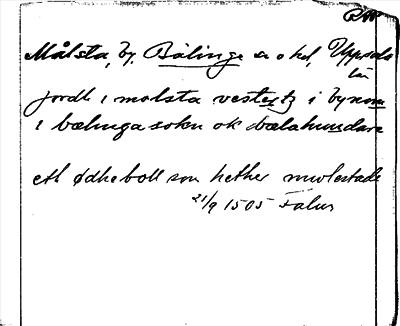 Målsta, by, Bälinge s o hd, Uppsala
län
jordh i molsta vesterst i bynom
i bælinga sokn ok bælahundare
eth ødheboll som hether mwlestadh
21/9 1505 Falun